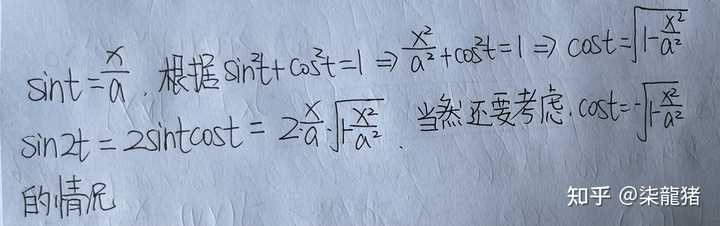 sint=x/a. 根据sin²t+cos²t=1 ⇒ x²/a²+cos²t=1 ⇒ cost=√(1-x²/a²)
sin2t=2sintcost=2·x/a·√(1-x²/a²). 当然还要考虑.cost=-√(1-x²/a²)
的情况
知乎 @柒龍猪